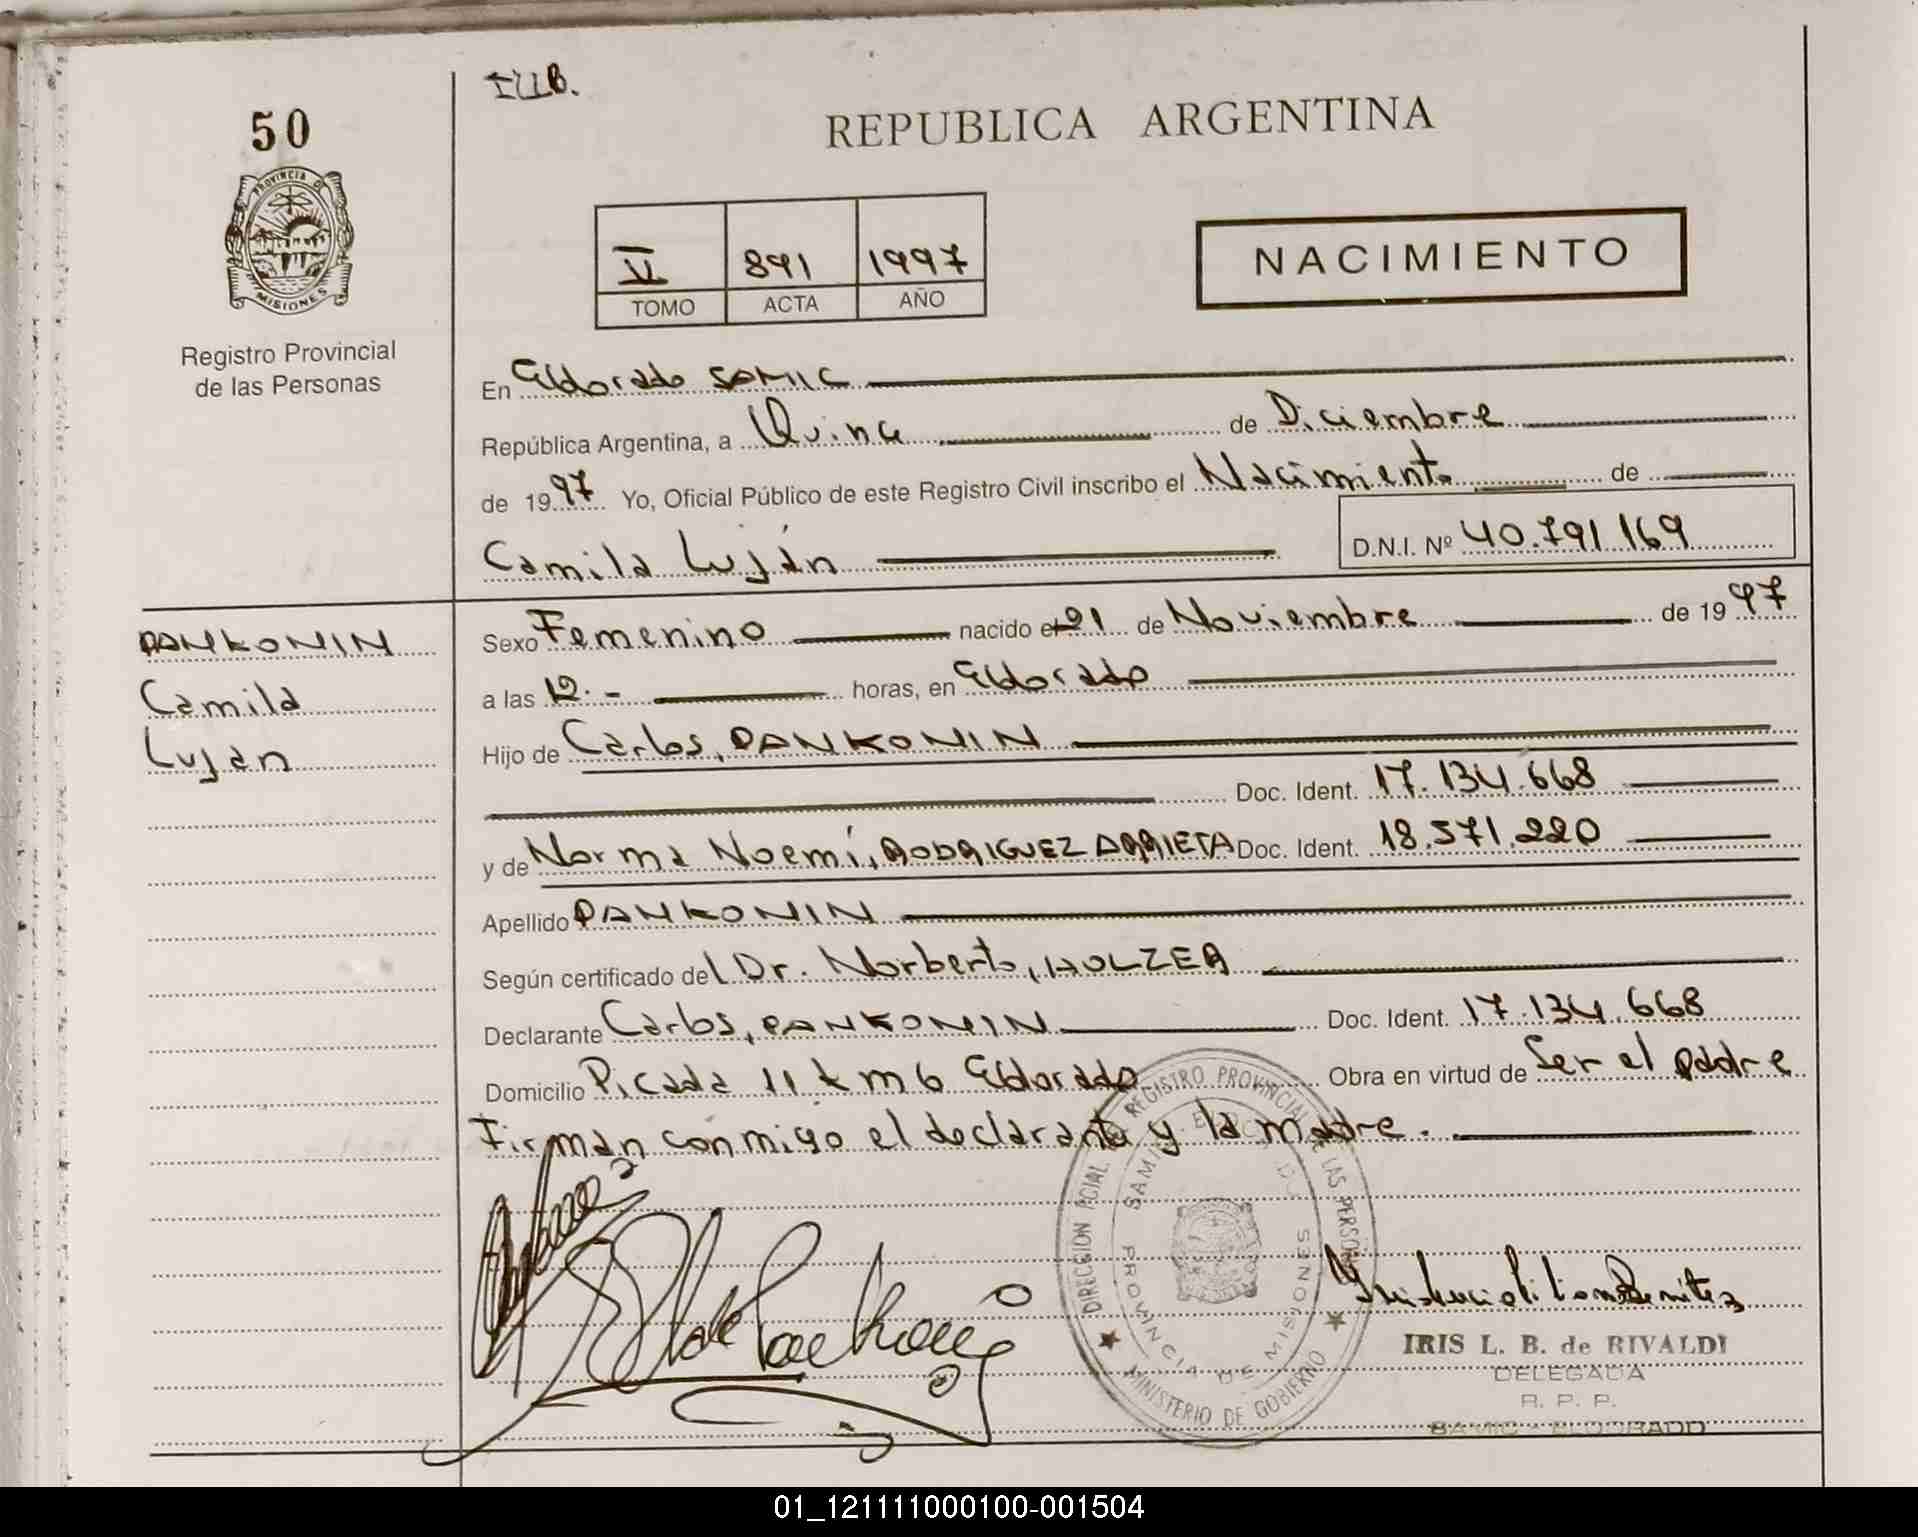 I.L.L.B.
50
REPUBLICA ARGENTINA
PROVINCIA D
MISIONES
Registro Provincial
de las Personas
V 891 1997
TOMO ACTA AÑO
NACIMIENTO
En Eldorado SAMIC
República Argentina, a Quince de Diciembre
de 1997 Yo, Oficial Público de este Registro Civil inscribo el Nacimiento de
Camila Luján D.N.I. Nº 40.791.169
PANKONIN
Camila
Luján
Sexo Femenino nacido el 21 de Noviembre de 1997
a las 12.- horas, en Eldorado
Hijo de Carlos, PANKONIN
Doc. Ident. 17.134.668
y de Norma Noemí, RODRIGUEZ ARRIETA Doc. Ident. 18.571.220
Apellido PANKONIN
Según certificado del Dr. Norberto, HOLZER
Declarante Carlos, PANKONIN Doc. Ident. 17.134.668
Domicilio Picada 11 km 6 Eldorado Obra en virtud de Ser el padre
Firman conmigo el declarante y la madre.
DIRECCION PCIAL REGISTRO PROVINCIAL DE LAS PERSONAS
SAMIC
PROVINCIA DE MISIONES
MINISTERIO DE GOBIERNO
IRIS L. B. de RIVALDI
DELEGADA
R. P. P.
SAMIC - ELDORADO
01_121111000100-001504